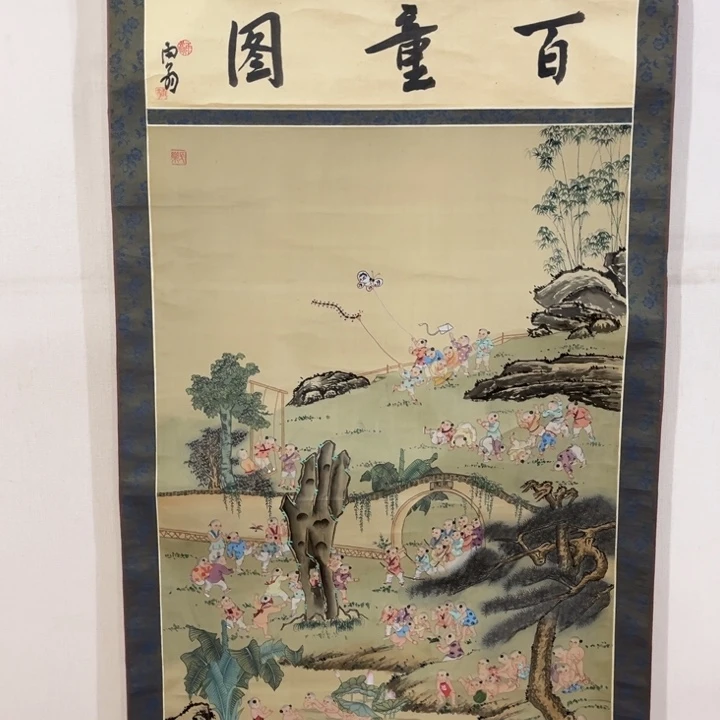 百童图
雨翁